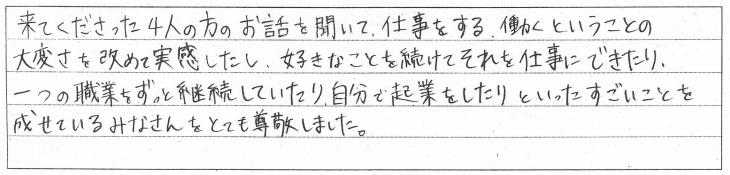 来てくださった4人の方のお話を聞いて、仕事をする、働くということの
大変さを改めて実感したし、好きなことを続けてそれを仕事にできたり、
一つの職業をずっと継続していたり、自分で起業をしたりといったすごいことを
成せているみなさんをとても尊敬しました。